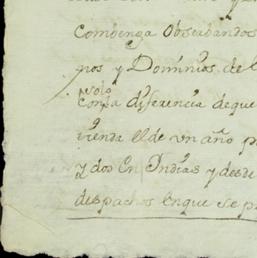 Combenga Observandos
nos y Dominios de
solo
con la diferencia deque
tienda el de un año p
y dos En Indias y desde
despachos enque se p